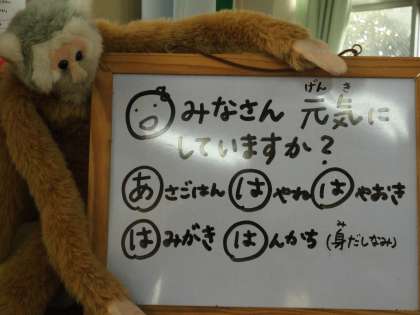 みなさん 元気に
げんき
していますか？
あさごはん はやね はやおき
はみがき はんかち (身だしなみ)
み